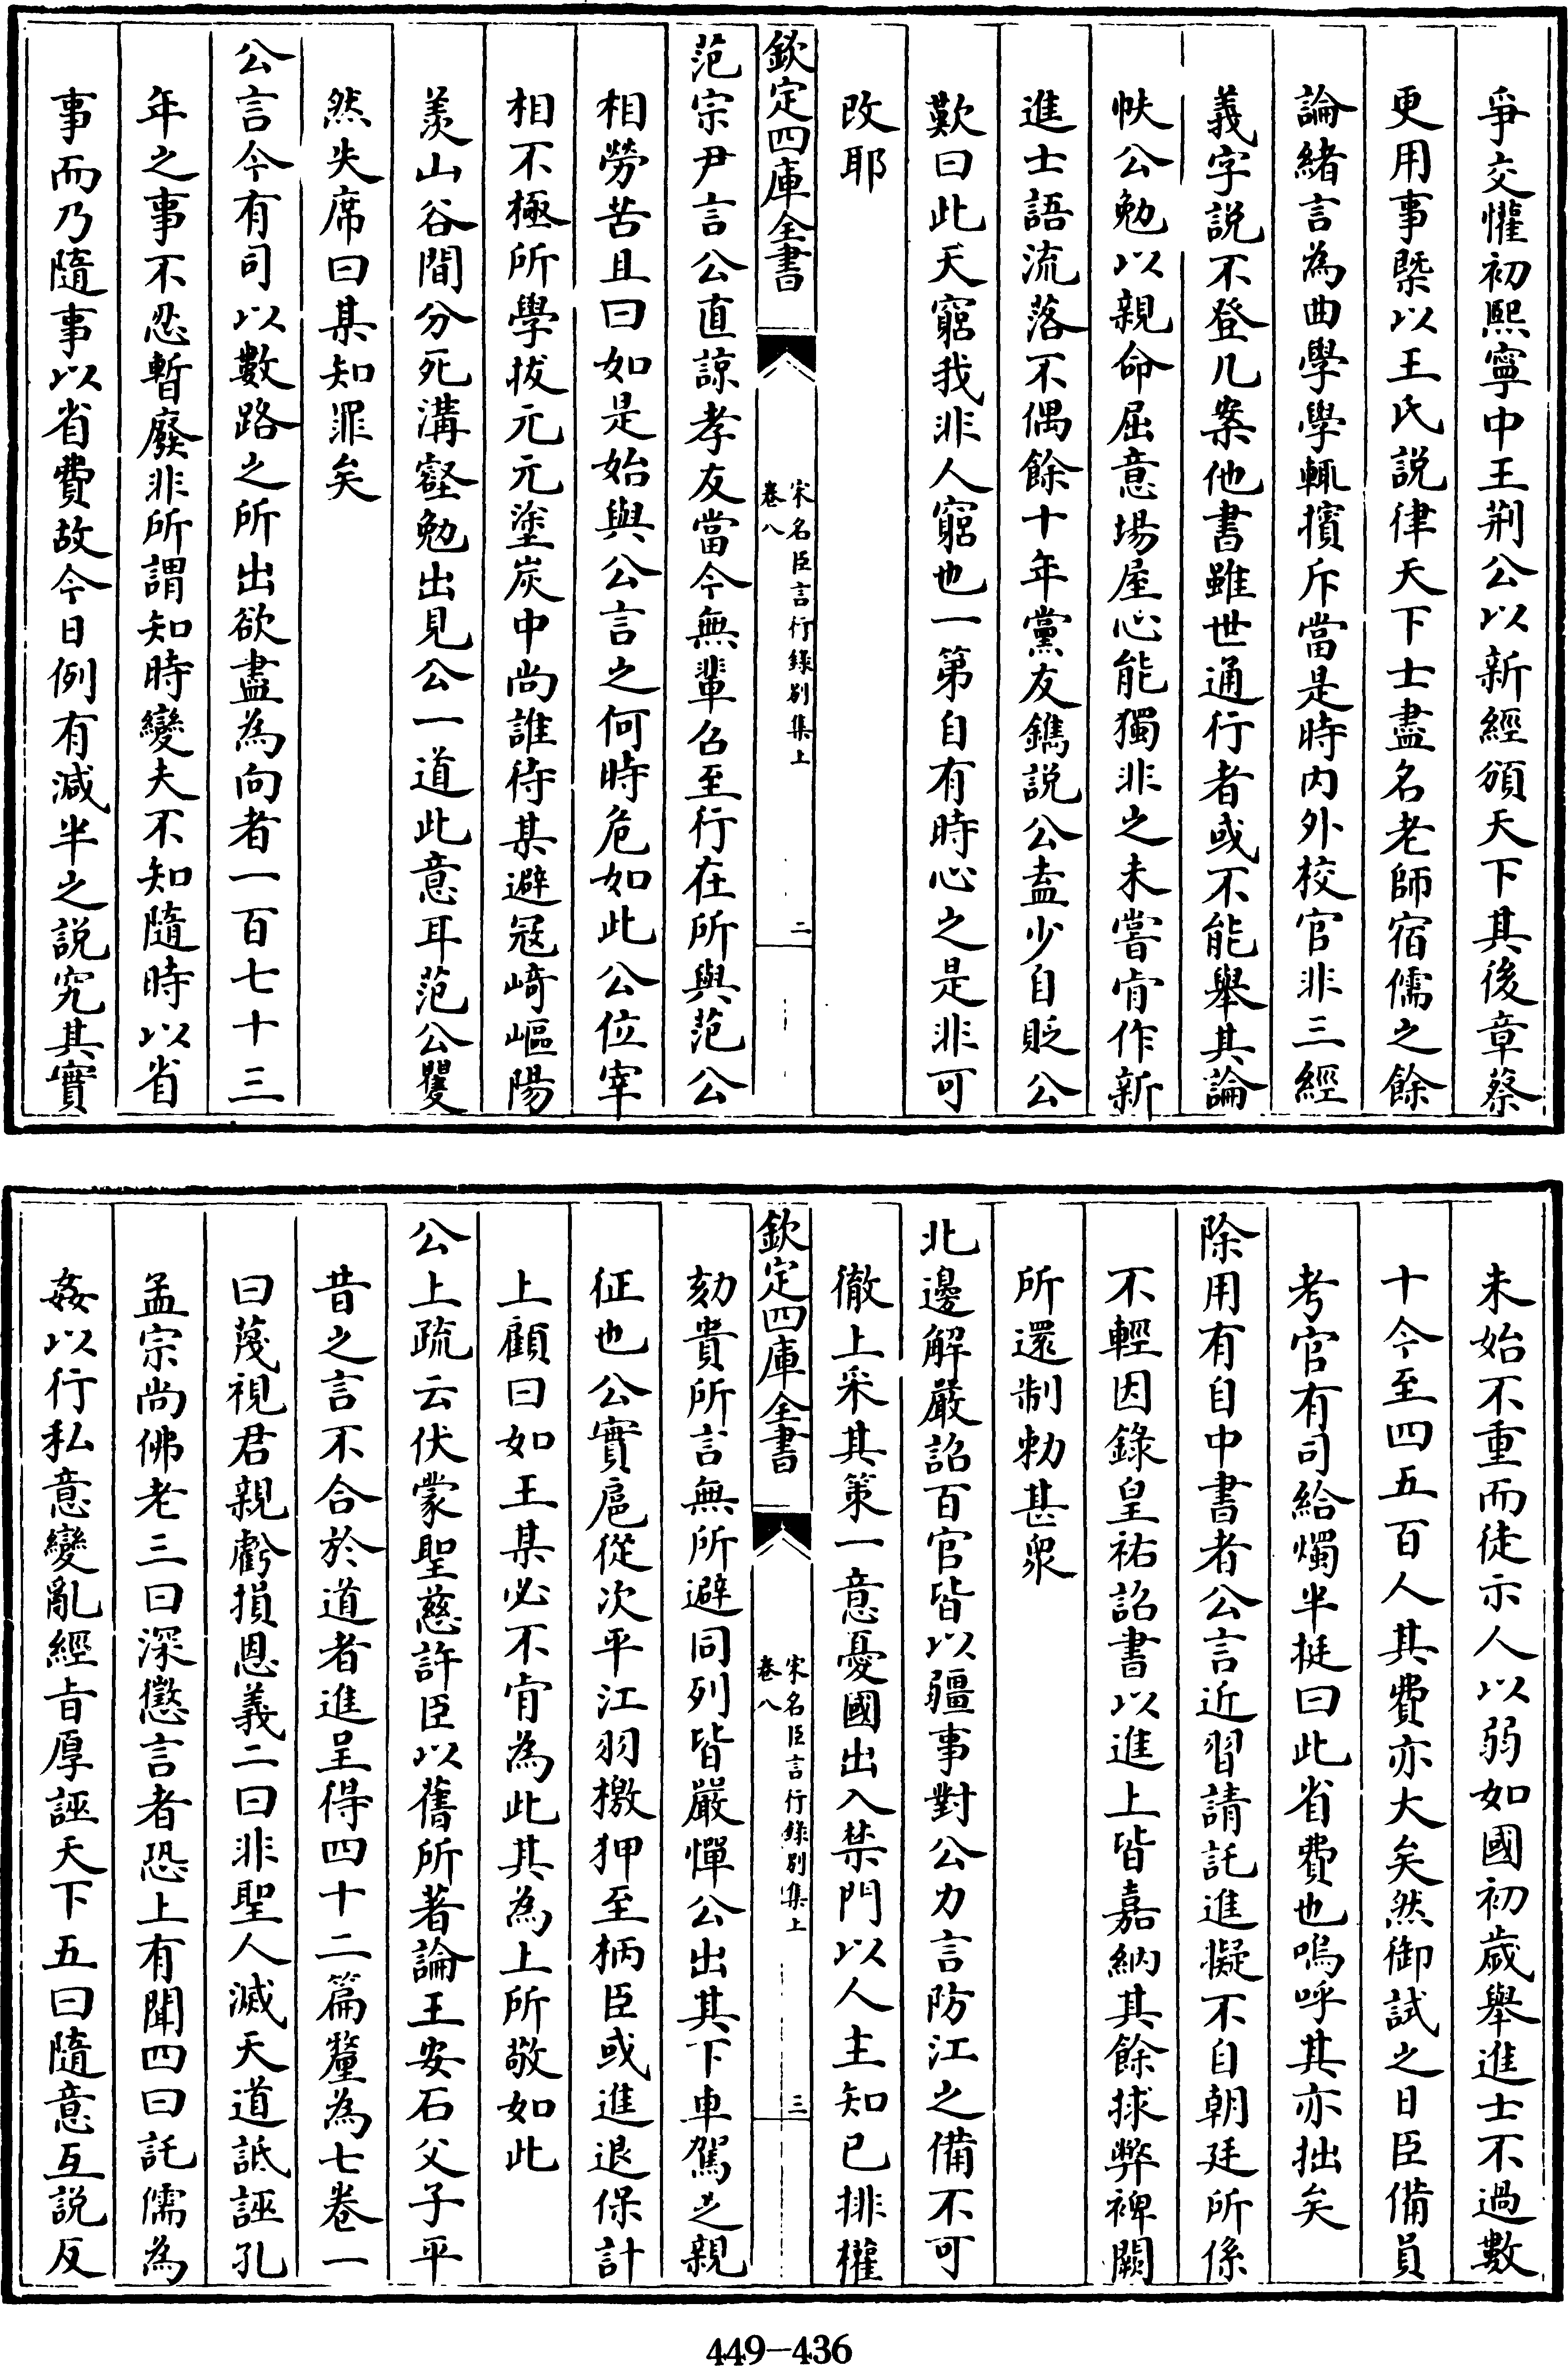 爭交懽初熙寧中王荆公以新經頒天下其後章蔡
更用事槩以王氏説律天下士盡名老師宿儒之餘
論緒言為曲學學輒擯斥當是時内外校官非三經
義字説不登几案他書雖世通行者或不能舉其論
帙公勉以親命屈意場屋心能獨非之未嘗肯作新
進士語流落不偶餘十年黨友鐫説公盍少自貶公
歎曰此天窮我非人窮也一第自有時心之是非可
改耶
欽定四庫全書
宋名臣言行錄别集上
卷八
二
范宗尹言公直諒孝友當今無輩召至行在所與范公
相勞苦且曰如是始與公言之何時危如此公位宰
相不極所學拔元元塗炭中尚誰待某避冦崎嶇陽
羨山谷間分死溝壑勉出見公一道此意耳范公矍
然失席曰某知罪矣
公言今有司以數路之所出欲盡為向者一百七十三
年之事不忍暫廢非所謂知時變夫不知隨時以省
事而乃隨事以省費故今日例有減半之説究其實
未始不重而徒示人以弱如國初歳舉進士不過數
十今至四五百人其費亦大矣然御試之日臣備員
考官有司給燭半挺曰此省費也嗚呼其亦拙矣
除用有自中書者公言近習請託進擬不自朝廷所係
不輕因錄皇祐詔書以進上皆嘉納其餘捄弊裨闕
所還制勅甚衆
北邊解嚴詔百官皆以疆事對公力言防江之備不可
徹上采其策一意憂國出入禁門以人主知已排權
欽定四庫全書
宋名臣言行錄别集上
卷八
三
劾貴所言無所避同列皆嚴憚公出其下車駕之親
征也公實扈從次平江羽檄狎至柄臣或進退保計
上顧曰如王某必不肯為此其為上所敬如此
公上疏云伏蒙聖慈許臣以舊所著論王安石父子平
昔之言不合於道者進呈得四十二篇釐為七卷一
曰蔑視君親虧損恩義二曰非聖人滅天道詆誣孔
孟宗尚佛老三曰深懲言者恐上有聞四曰託儒為
姦以行私意變亂經旨厚誣天下五曰隨意互説反
449-436